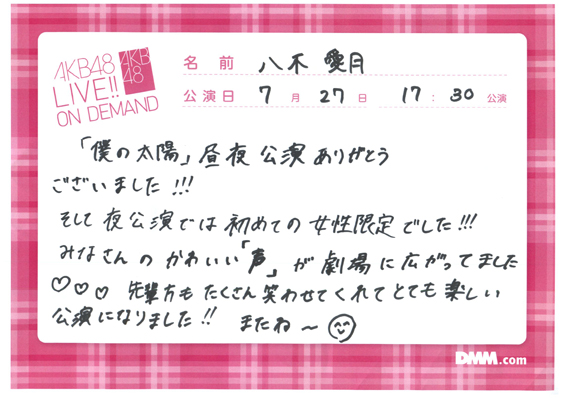 AKB48
LIVE!!
ON DEMAND
AKB
48
名前 八木 愛月
公演日 7月27日 17:30公演
「僕の太陽」昼夜公演ありがとう
ございました!!!
そして夜公演では初めての女性限定でした!!!
みなさんのかわいい「声」が劇場に広がってました
♡♡♡ 先輩方もたくさん笑わせてくれてとても楽しい
公演になりました!! またね〜
DMM.com